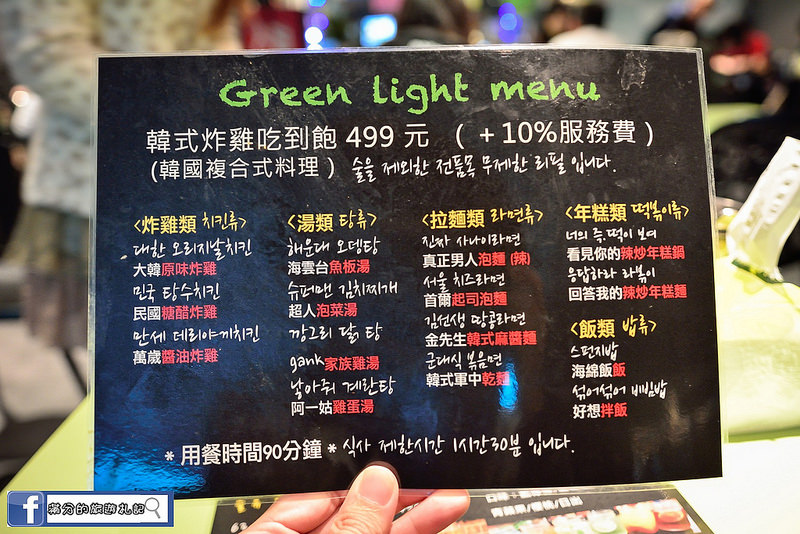 Green light menu
韓式炸雞吃到飽 499 元 ( +10%服務費 )
(韓國複合式料理) 술을 제외한 전품목 무제한 리필 입니다.
<炸雞類 치킨류>
대한 오리지날치킨
大韓原味炸雞
민국 탕수치킨
民國糖醋炸雞
만세 데리야끼치킨
萬歲醬油炸雞
<湯類 탕류>
해운대 오뎅탕
海雲台魚板湯
슈퍼맨 김치찌개
超人泡菜湯
깡그리 닭 탕
gank家族雞湯
낳아줘 계란탕
阿一姑雞蛋湯
<拉麵類 라면류>
진짜 사나이라면
真正男人泡麵 (辣)
서울 치즈라면
首爾起司泡麵
김선생 땅콩라면
金先生韓式麻醬麵
군대식 볶음면
韓式軍中乾麵
<年糕類 떡볶이류>
너의 즉떡이 보여
看見你的辣炒年糕鍋
응답하라 라볶이
回答我的辣炒年糕麵
<飯類 밥류>
스펀지밥
海綿飯飯
섞어섞어 비빔밥
好想拌飯
* 用餐時間90分鐘 * 식사 제한시간 1시간30분 입니다.
滿分的旅遊札記